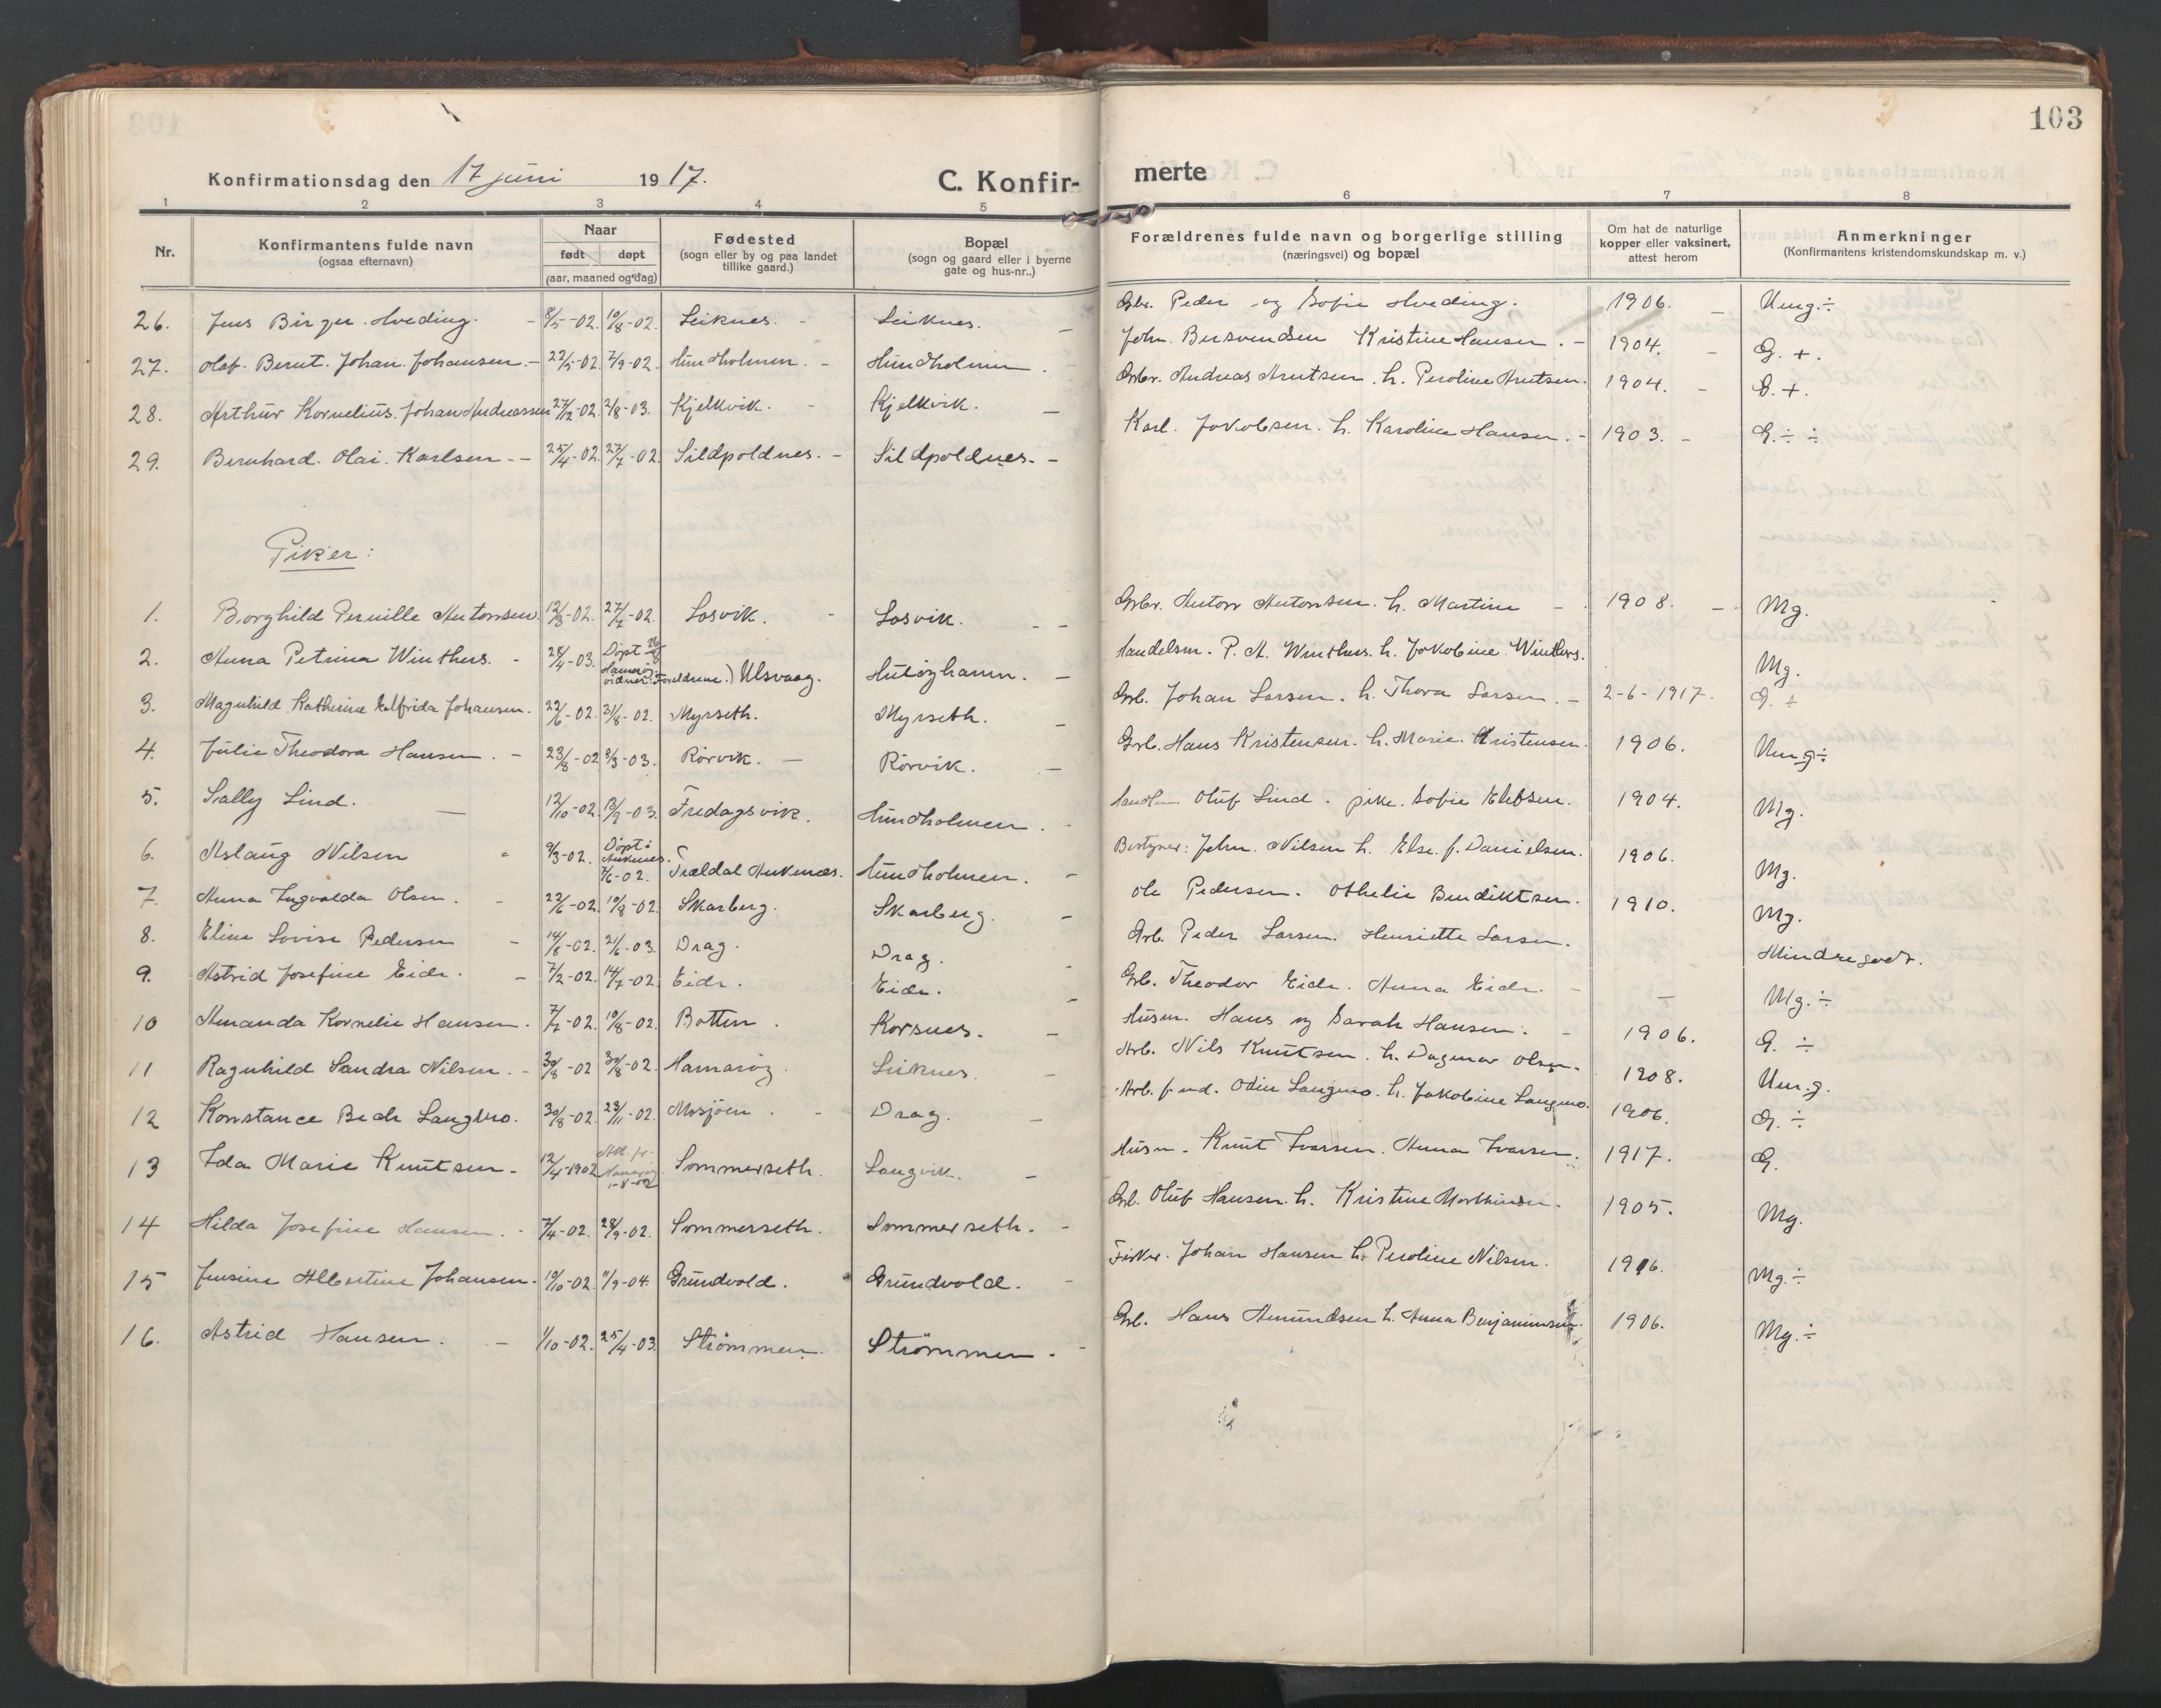 103
Konfirmationsdag den 17 juni 1917. C. Konfirmerte
1 2 3 4 5 6 7 8
Nr. Konfirmantens fulde navn (ogsaa efternavn) Naar født døpt (aar, maaned og dag) Fødested (sogn eller by og paa landet tillike gaard.) Bopæl (sogn og gaard eller i byerne gate og hus-nr..) Forældrenes fulde navn og borgerlige stilling (næringsvei) og bopæl Om hat de naturlige kopper eller vaksinert, attest herom Anmerkninger (Konfirmantens kristendomskundskap m. v.)
26. Jens Birger Hveding. - 8/5-02. 10/8-02. Leiknes. - Leiknes. - Gbr. Peder og Sofie Hveding. 1906. - Ung.÷
27. Olaf. Bernt. Johan. Johansen. - 22/5-02. 7/9-02. Hundholmen. - Hundholmen. John. Bersvendsen Kristine Hansen. - 1904. - G. +.
28. Arthur Kornelius. Johan Andreassen 27/12-02. 2/8-03. Kjelkvik. - Kjelkvik. - Grbr. Andreas Knutsen. h. Peroline Knutsen. 1904. - G. +.
29. Bernhard. Olai. Karlsen. - 25/4-02. 27/7-02. Sildpoldnes. - Sildpoldnes. - Karl. Jakobsen. h. Karoline Hansen. - 1903. - G. ÷ ÷
Piker:
1. Borghild Pernille Antonsen. 12/3-02. 27/7-02. Losvik. - Losvik. - - Grbr. Anton Antonsen. h. Martine - 1908. - Mg.
2. Anna Petrina Winthers. - 28/4-03. Døpt Hamarøy vidner: Foreldrene.) Ulsvaag. Huløyhamn. - Handelsm. P. A. Winthers. h. Jakobine Winthers. Mg.
3. Magnhild Kathrine Elfrida Johansen. 22/6-02. 31/8-02. Myrseth. Myrseth. - Grb. Johan Larsen. h. Thora Larsen. - 2-6-1917. G. +
4. Julie Theodora Hansen. - 23/8-02 8/3-03. Rörvik. - Rörvik. - Grb. Hans Kristensen. h. Marie. Kristensen. 1906. Um.g÷
5. Sally Lind. - 12/10-02. 13/9-03. Fredagsvik. Hundholmen. - Oluf Lind. pike. Sofie 1904. Mg.
6. Aslaug Nilsen 9/3-02. Døpt i Ankenes. 7/6-02. Trældal Ankenæs. Hundholmen. - Bestyrer: John. Nilsen h. Else. f. Danielsen. 1906. Mg.
7. Anna Ingvalda Olsen. - 22/6-02. 10/8-02. Skarberg. Skarberg. - Ole Pedersen. Othelie Bendiktsen. 1910. Mg.
8. Eline Lovise Pedersen - 14/8-02. 21/6-03. Drag. Drag. - Grb. Peder Larsen. Henriette Larsen. Mindre godt.
9. Astrid Josefine Eide. - 7/2-02. 14/7-02. Eide. Eide. - Grb. Theodor Eide. Anna Eide. - - Mg. ÷
10 Amanda Kornelie Hansen. 7/7-02. 10/8-02. Botten. Korsnes. - Husm. Hans og Sarah Hansen. - 1906. G. ÷
11 Ragnhild Sandra Nilsen. - 30/8-02 30/8-02. Hamarøy. Leiknes. - Arb. Nils Knutsen. h. Dagmar Olsen. 1908. Um.g.
12 Konstance Langmo. 30/8-02. 23/11-02. Mosjöen. - Drag. - Arb. Odin Langmo. h. Jakobine Langmo. 1906. G. ÷
13 Ida Marie Knutsen - 12/4-1902 Att. fr. Hamarøy 1-8-02 Sommerseth. Langvik. - Husm. Knut Ivarsen. Anna Ivarsen. 1917. G.
14 Hilda Josefine Hansen. - 7/4-02. 28/9-02. Sommerseth. Sommerseth. - Grb. Oluf Hansen. h. Kristine Marthinsen. 1905. Mg.
15 Jensine Albertine Johansen. 10/10-02. 11/9-04. Grundvold. Grundvold. - Fisker. Johan Hansen h. Peroline Nilsen. 1916. Mg. ÷
16. Astrid Hansen. - 1/10-02. 25/4-03. Strömmen. Strömmen. - Grb. Hans Amundsen h. Anna Benjaminsen. 1906. Mg. ÷